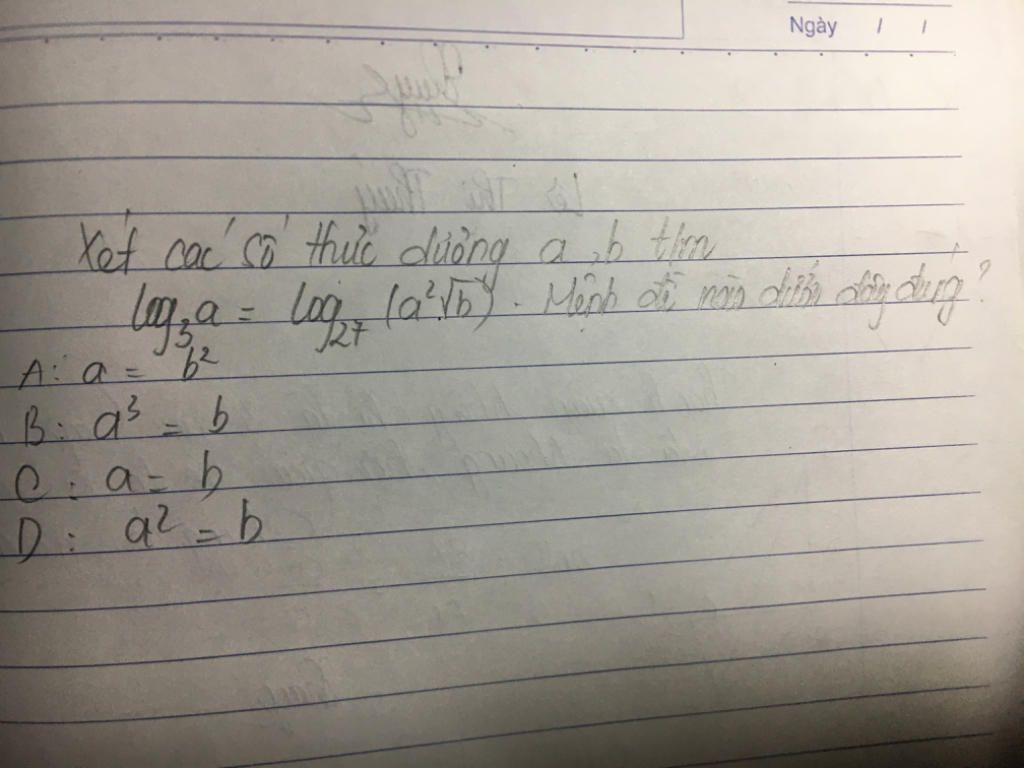 Ngày / /
Xét các số thức dương a, b t/m
log₃a = log₂₇ (a²√b). Mệnh đề nào dưới đây đúng?
A: a = b²
B: a³ = b
C: a = b
D: a² = b